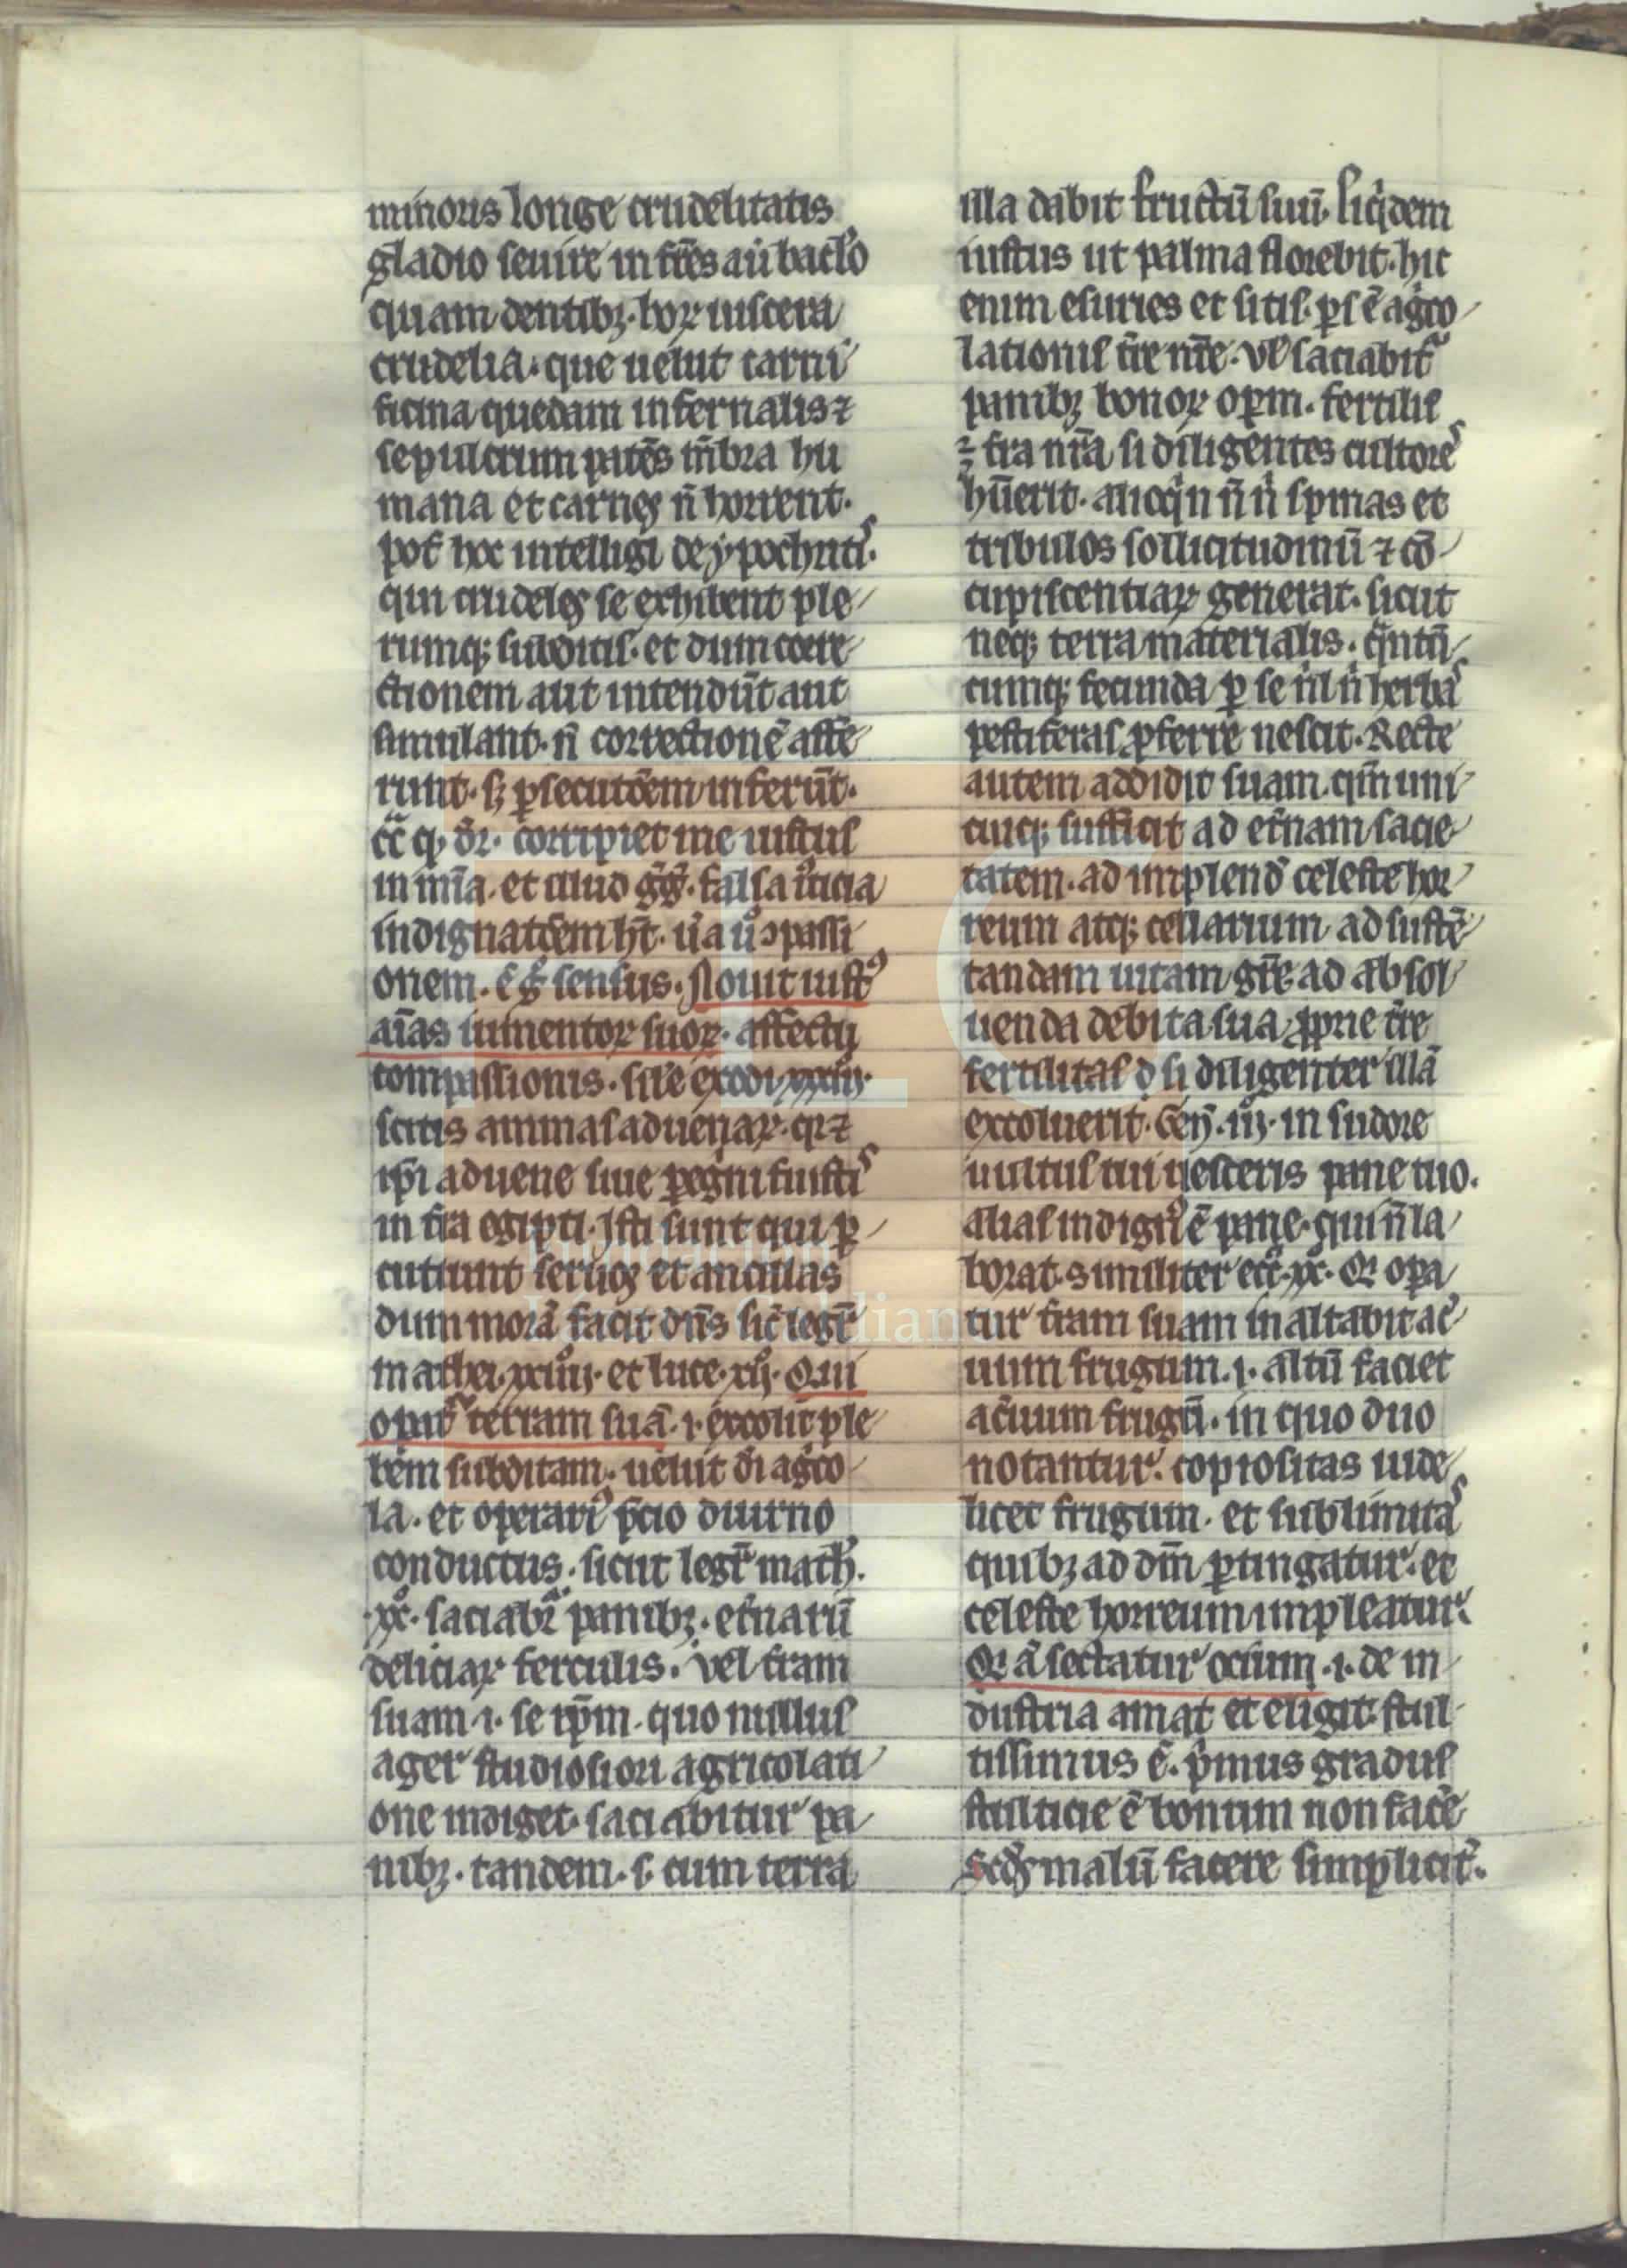 minoris longe crudelitatis
gladio seuire in fr̄es aū baclo
quam dentibꝫ. hoꝝ uiscera
crudelia. que uelut carni
ficina quedam infernalis ⁊
sepulcrum patēs mēbra hu
mana et carnes n̄ horrent.
pot̄ hoc intelligi de ypochritis.
qui crudeles se exhibent ple
rumqꝫ subditis. et dum corre
ctionem aut intendūt aut
simulant. n̄ correctionē affe
runt. sꝫ ꝑsecutōem inferūt.
corripiet me iustus
in mīa. et illud gḡ. falsa iusticia
indignatōem hꝫ. ūa ū ꝯpassi
onem. ē g̊ sensus. Nouit iustꝰ
aīas iumentoꝝ suoꝝ. affectu
compassionis. sil'e exodi xxiij.
scitis animas aduenaꝝ. qꝛ ⁊
ip̄i aduene siue ꝑegni fuistis
in t̄ra egipti. Isti sunt qui ꝑ
cutiunt seruos et ancillas
dum morā facit dn̄s sic̄ legit̄
mathei. xxiiij. et luce. xij. Qui
opat̄ terram suā. i. excolit ple
bem subditam. uelut dī agco
la. et operariꝰ p̄cio diurno
conductus. sicut legit̄ math.
xx. saciabit̄ panibꝫ. et̄narū
deliciaꝝ ferculis. Vel t̄ram
suam .i. se ip̄m. quo nullus
ager studiosiori agricolati
one indiget. saciabitur pa
nibꝫ. tandem. s. cum terra
illa dabit fructū suū. siquidem
iustus ut palma florebit. hic
enim esuries et sitis. ꝑs ē agco
lationis t̄re nr̄e. vl' saciabit̄
panibꝫ bonoꝝ oꝑm. fertilis
ē t̄ra nr̄a si diligentes cultores
hūerit. alioqin n̄ n̄ spinas et
tribulos sollicitudinū ⁊ cō
cupiscentiaꝝ generat. sicut
neqꝫ terra materialis. qn̄tū
cumqꝫ fecunda ꝑ se nil n̄ herbas
pestiferas ꝓferre nescit. Recte
autem addidit suam. qm̄ uni
cuiqꝫ sufficit ad et̄nam sacie
tatem. ad implend' celeste hor
reum atqꝫ cellarium. ad sustē
tandam uitam gr̄e ad absol
uenda debita sua. ꝓprie t̄re
fertilitas d̄ si diligenter illā
excoluerit. Gen̄. iij. in sudore
uultus tui uesceris pane tuo.
alias indignꝰ ē pane. qui n̄ la
borat. similiter ecc̄. xx. Qi oꝑa
tur t̄ram suam inaltabit ac̄
uum frugum. i. altū faciet
ac̄uum frugū. in quo duo
notantur. copiositas uide
licet frugum. et sublimitas
quibꝫ ad dm̄ ꝑtingatur. et
celeste horreum impleatur.
Qi aū sectatur ocium .i. de in
dustria amat et eligit. stul
tissimus ē. p̄mus gradus
stulticie ē bonum non face
scd̓s malū facere simplicit̄.